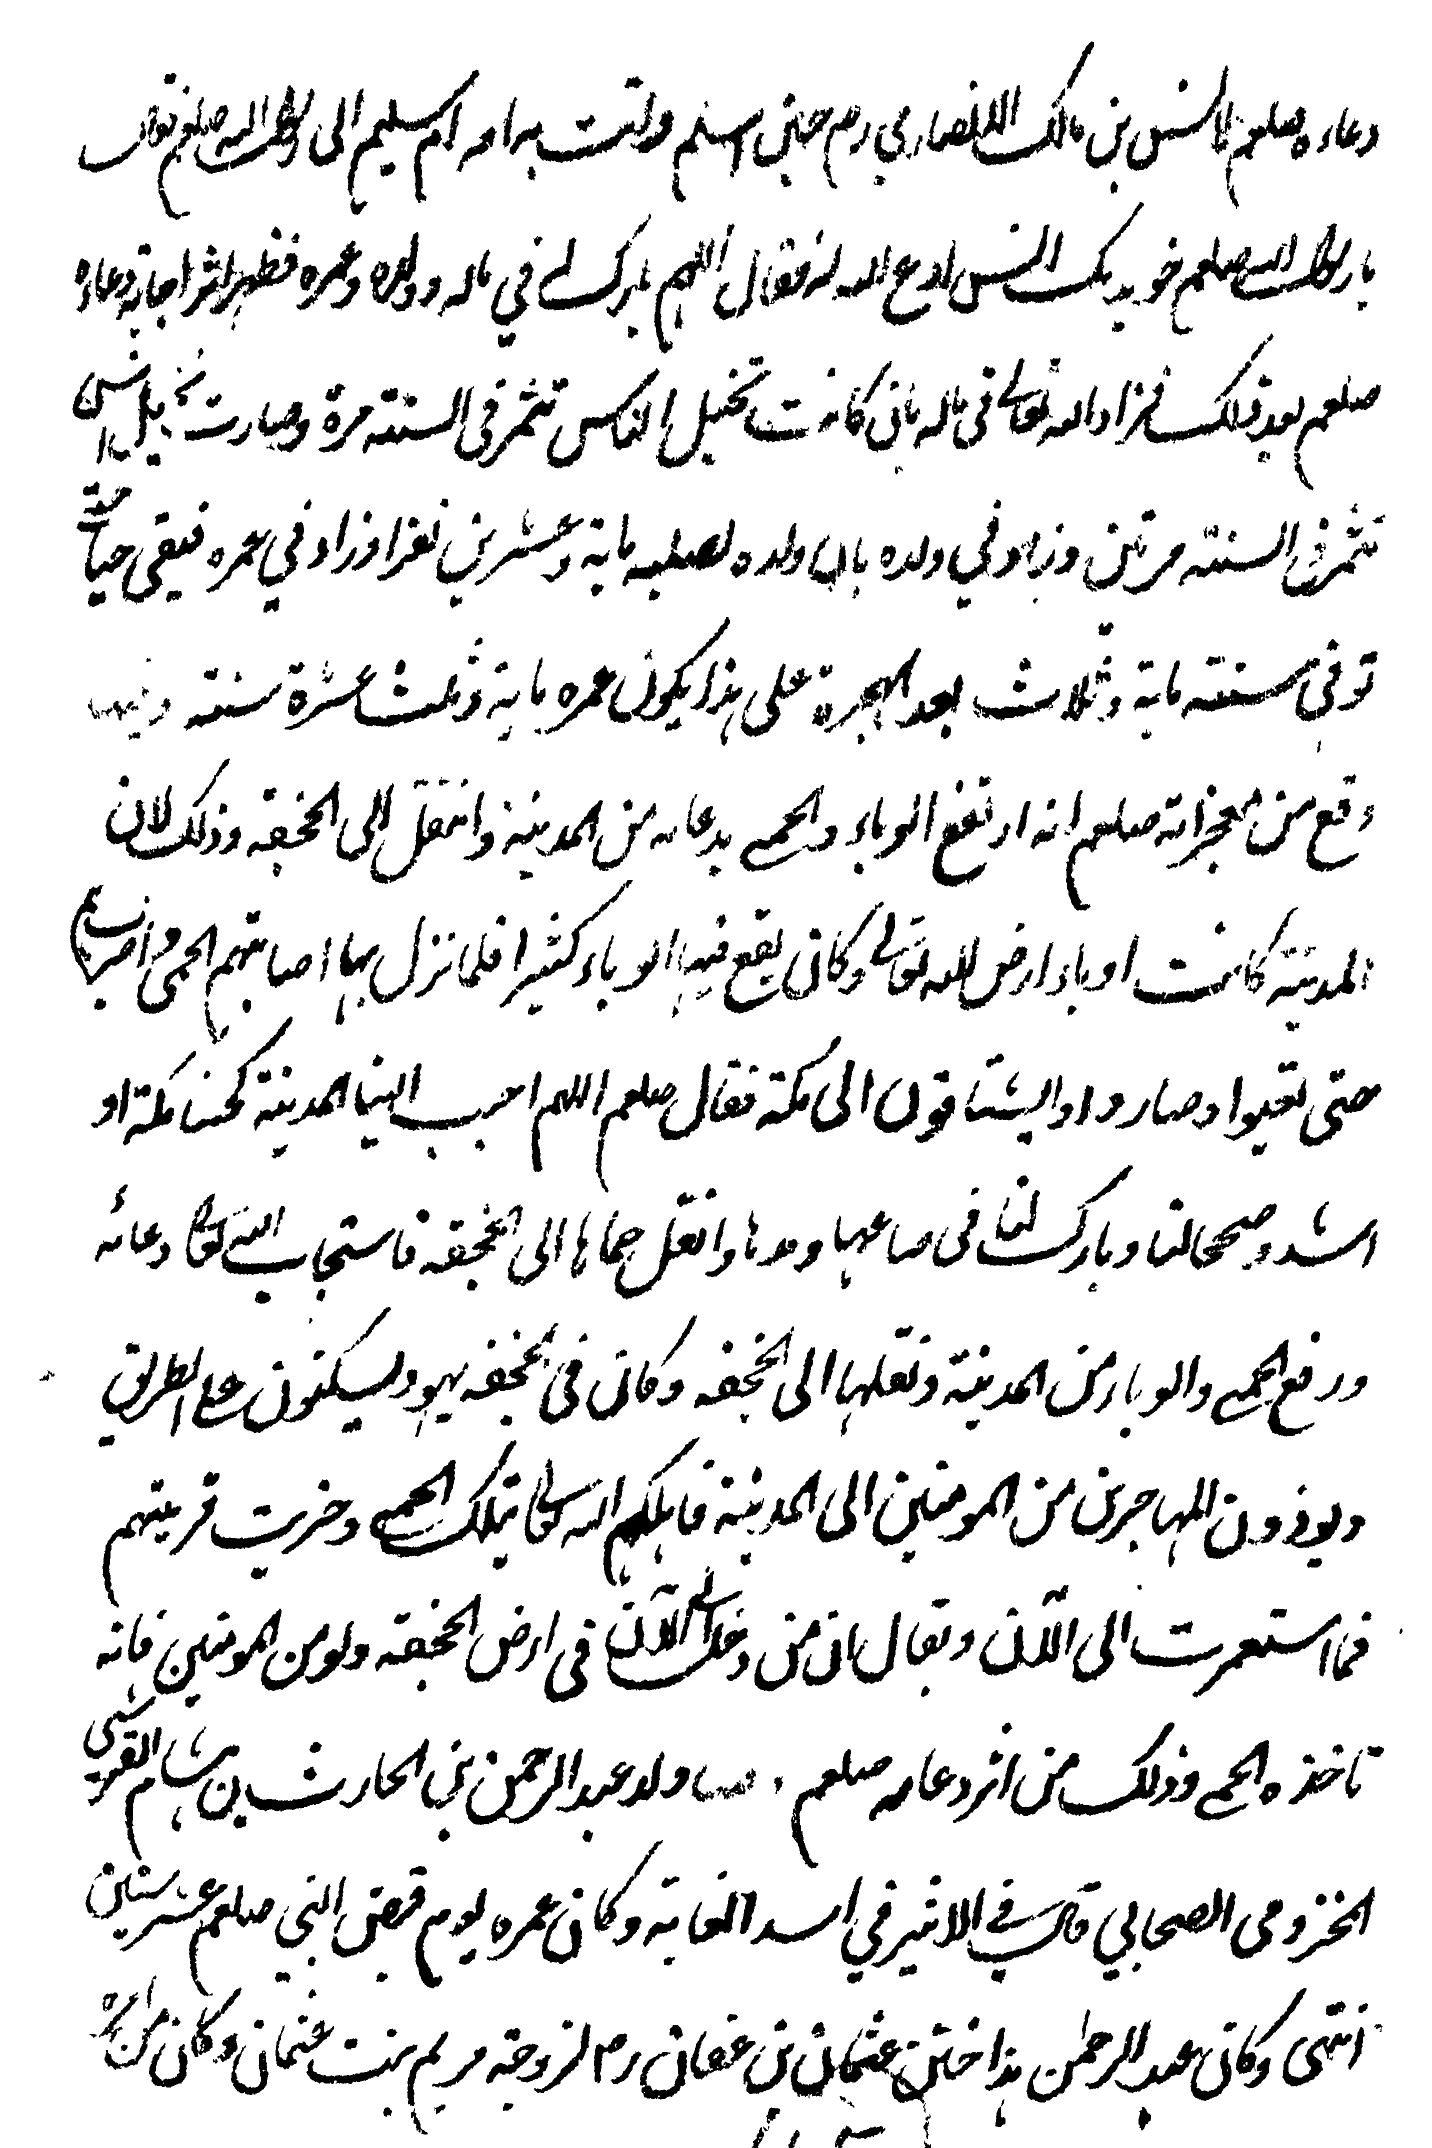 دعاءه صلعم لانس بن مالك الانصاري رض حين اسلم واتت به امه ام سليم الى رسول الله صلعم فقالت
يا رسول الله صلعم خويدمك انس ادع الله له فقال اللهم بارك له في ماله وولده وعمره فظهر اثر اجابة دعاءه
صلعم بعد ذلك فزاد الله تعالى في ماله بان كانت نخيل الناس تثمر في السنة مرة وصارت نخيل انس
تثمر في السنة مرتين وزاد في ولده بان ولده لصلبه ماية وعشرين نفرا وزاد في عمره فبقى حيا حتى
توفى سنة ماية وثلاث بعد الهجرة على هذا يكون عمره ماية وثلث عشرة سنة وفيها
وقع من معجزاته صلعم انه ارتفع الوباء والحمى بدعائه من المدينة وانتقل الى الجحفة وذلك لان
المدينة كانت اوباء ارض الله تعالى وكان يقع فيها الوباء كثيرا فلما نزل بها اصابتهم الحمى و
حتى تعبوا وصاروا يشتاقون الى مكة فقال صلعم اللهم احبب الينا المدينة كحبنا مكة او
اشد وصححها لنا وبارك لنا في صاعها ومدها وانقل حماها الى الجحفة فاستجاب الله تعالى دعائه
ورفع الحمى والوباء من المدينة ونقلها الى الجحفة وكان في الجحفة يهود يسكنون على الطريق
ويوذون المهاجرين من المومنين الى المدينة فاهلكهم الله تعالى بتلك الحمى وخربت قريتهم
فما استعمرت الى الآن ويقال ان من دخل الى الآن في ارض الجحفة ولو من المومنين فانه
تاخذه الحمى وذلك من اثر دعائه صلعم ، ولد عبد الرحمن بن الحارث بن هشام القرشي
المخزومى الصحابي قال في الاثير في اسد الغابة وكان عمره يوم قبض النبي صلعم عشر سنين
انتهى وكان عبد الرحمن هذا ختن عثمان بن عفان رض لزوجه مريم بنت عثمان وكان من